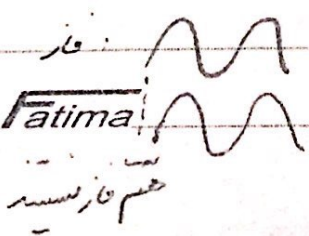 فاز
Fatima
هم فاز نیستند